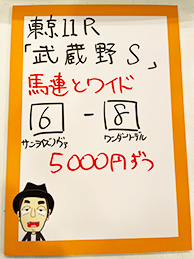 東京11R
「武蔵野S」
馬連とワイド
6 - 8
サンライズノヴァ ワンダーリーデル
5000円ずつ